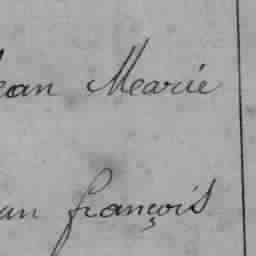 ean Marie
an françois